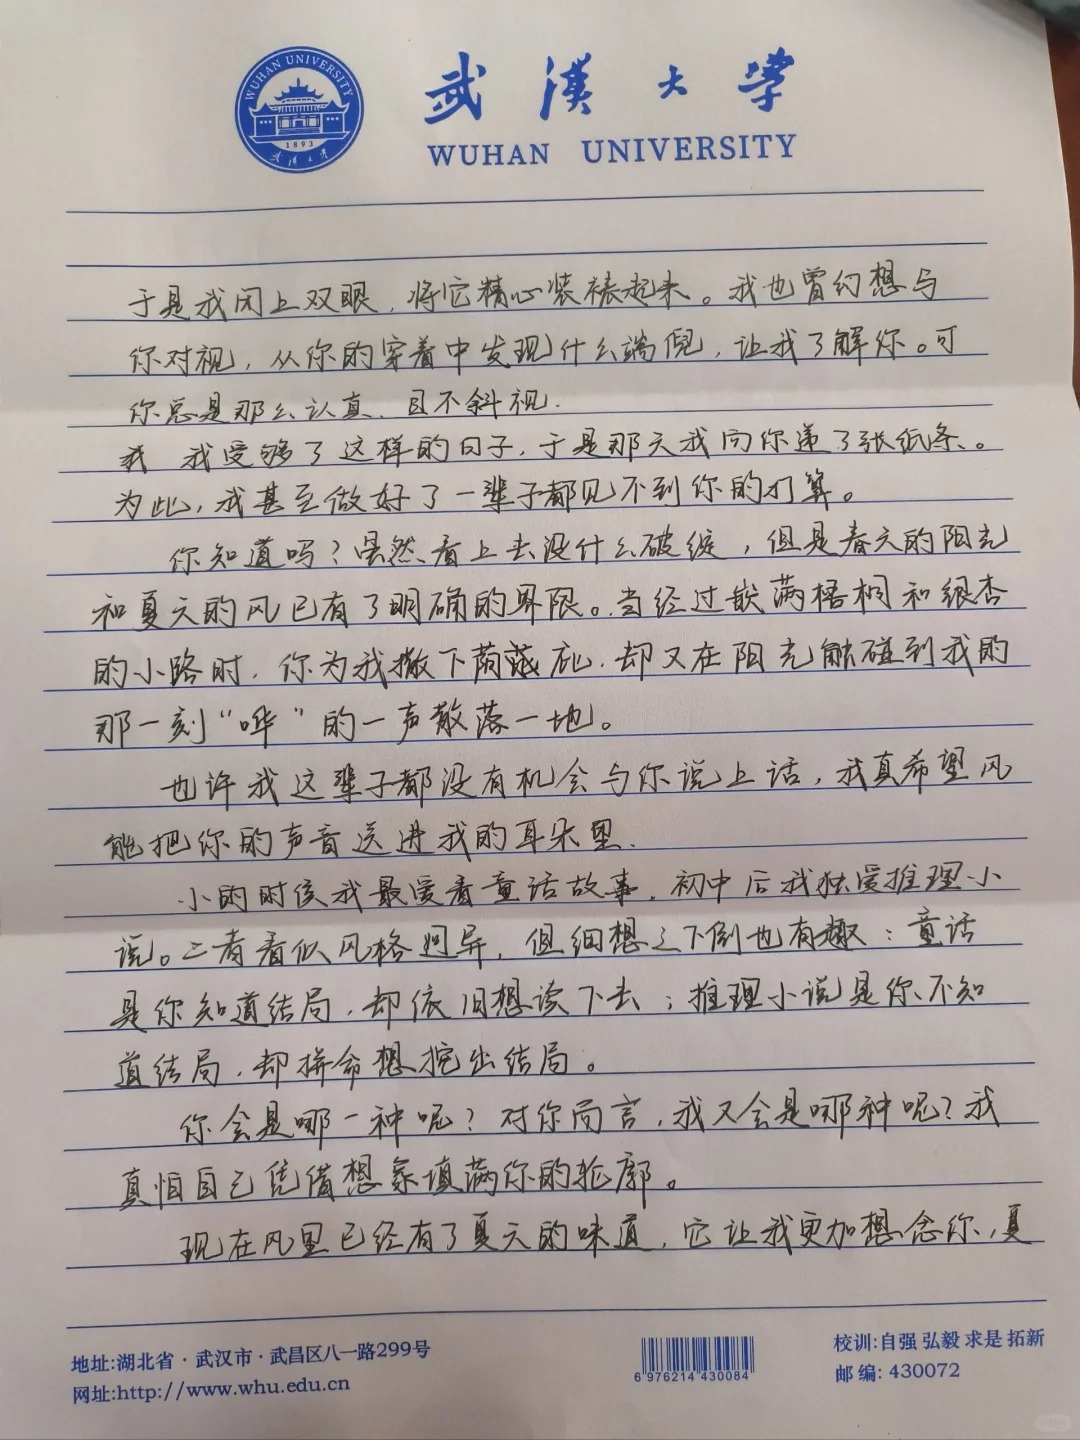 WUHAN UNIVERSITY
1893
武漢大學
武漢大學
WUHAN UNIVERSITY
于是我闭上双眼，将它精心装裱起来。我也曾幻想与
你对视，从你的穿着中发现什么端倪，让我了解你。可
你总是那么认真，目不斜视.
我 我受够了这样的日子，于是那天我向你递了张纸条、。
为此，我甚至做好了一辈子都见不到你的打算。
你知道吗？虽然看上去没什么破绽，但是春天的阳光
和夏天的风已有了明确的界限。当经过嵌满梧桐和银杏
的小路时，你为我撒下荫蔽，却又在阳光触碰到我的
那一刻“哗”的一声散落一地。
也许我这辈子都没有机会与你说上话，我真希望风
能把你的声音送进我的耳朵里.
小的时侯我最爱看童话故事，初中后我独爱推理小
说。二者看似风格迥异，但细想之下倒也有趣：童话
是你知道结局，却依旧想读下去；推理小说是你不知
道结局，却拼命想挖出结局。
你会是哪一种呢？对你而言，我又会是哪种呢？我
真怕自己凭借想象填满你的轮廓。
现在风里已经有了夏天的味道，它让我更加想念你，夏
地址:湖北省·武汉市·武昌区八一路299号
网址:http://www.whu.edu.cn
6 976214 430084
校训:自强 弘毅 求是 拓新
邮编: 430072